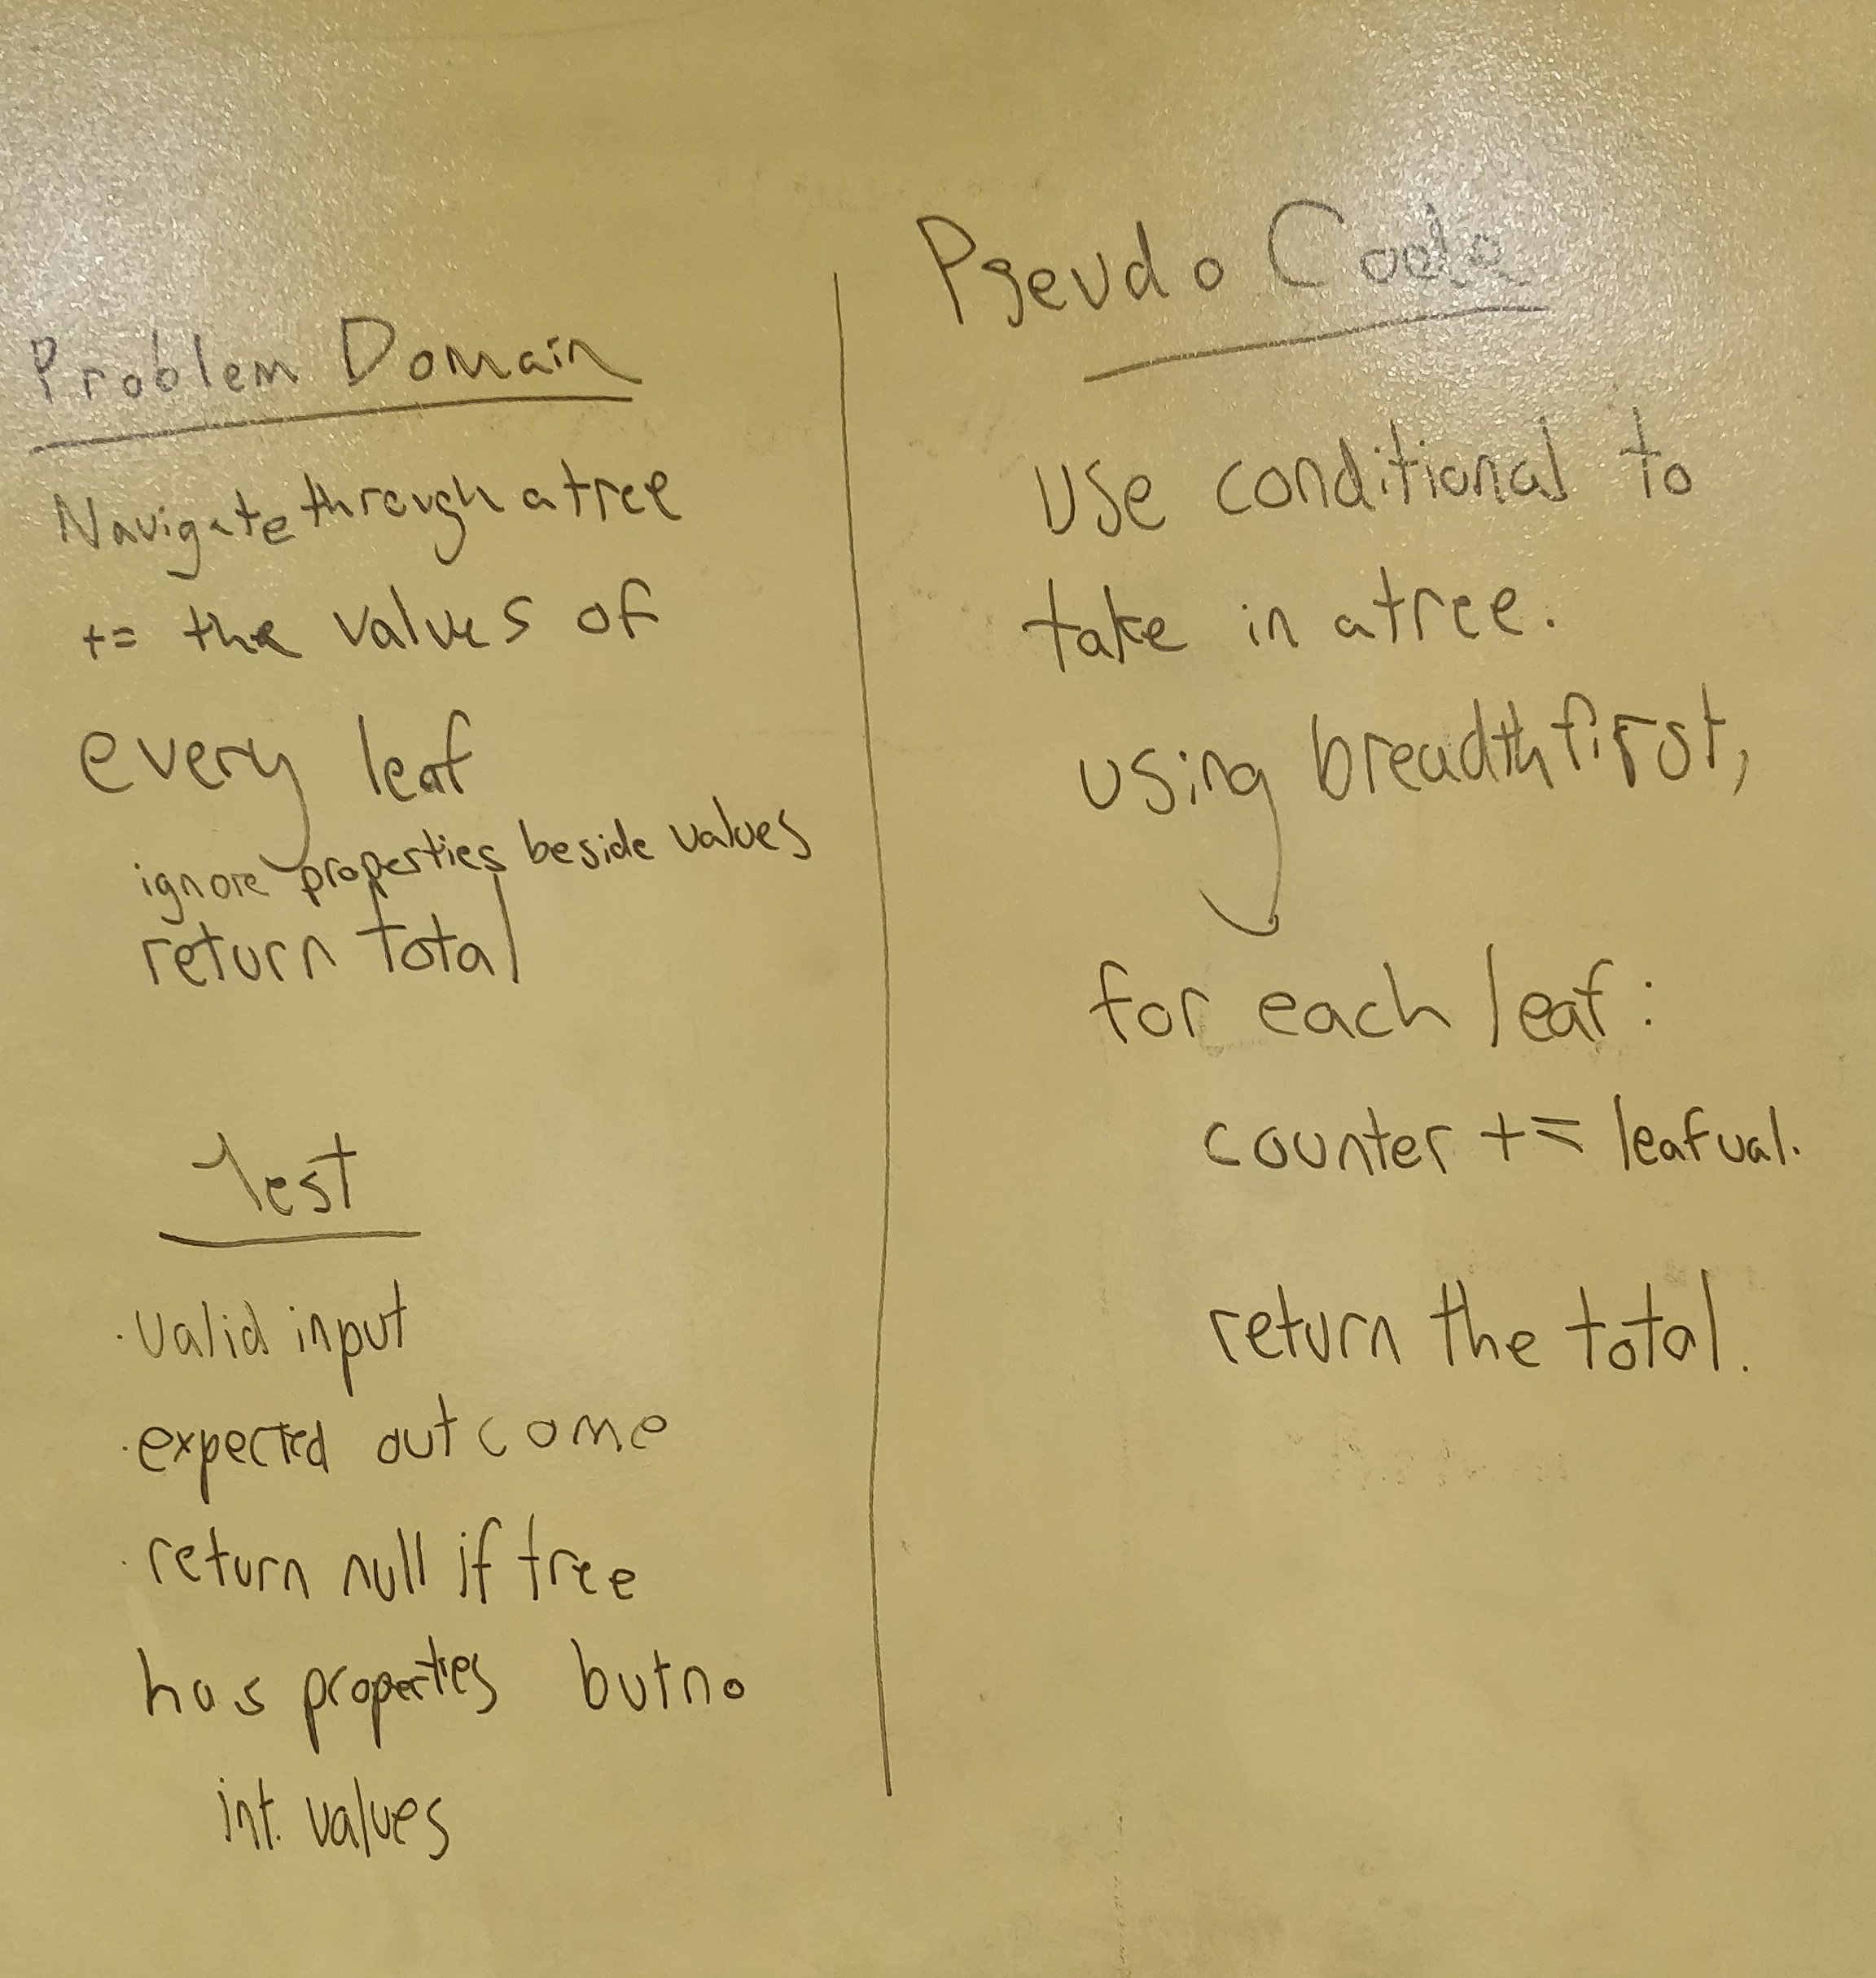 Problem Domain
Navigate through a tree
+= the values of
every leaf
ignore properties beside values
return total
Test
· valid input
· expected outcome
· return null if tree
has properties but no
int. values
Pseudo Code
Use conditional to
take in a tree.
using breadth first,
for each leaf:
counter += leaf val.
return the total.